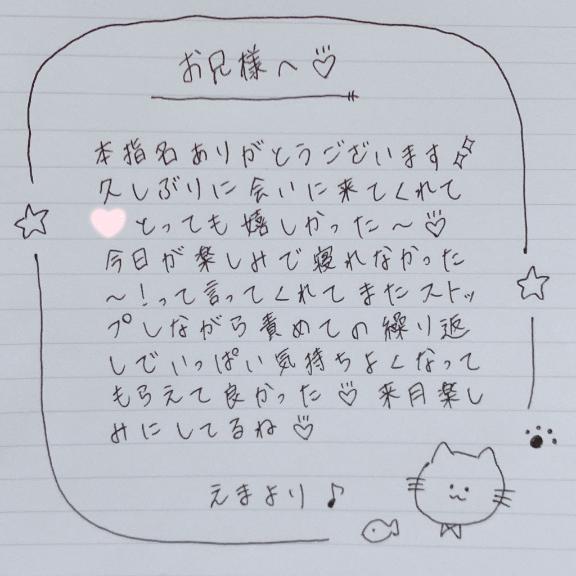 お兄様へ♡
本指名ありがとうございます
久しぶりに会いに来てくれて
とっても嬉しかった〜♡
今日が楽しみで寝れなかった
〜!って言ってくれてまたストッ
プしながら責めての繰り返
しでいっぱい気持ちよくなって
もらえて良かった♡ 来月楽し
みにしてるね♡
えまより♪